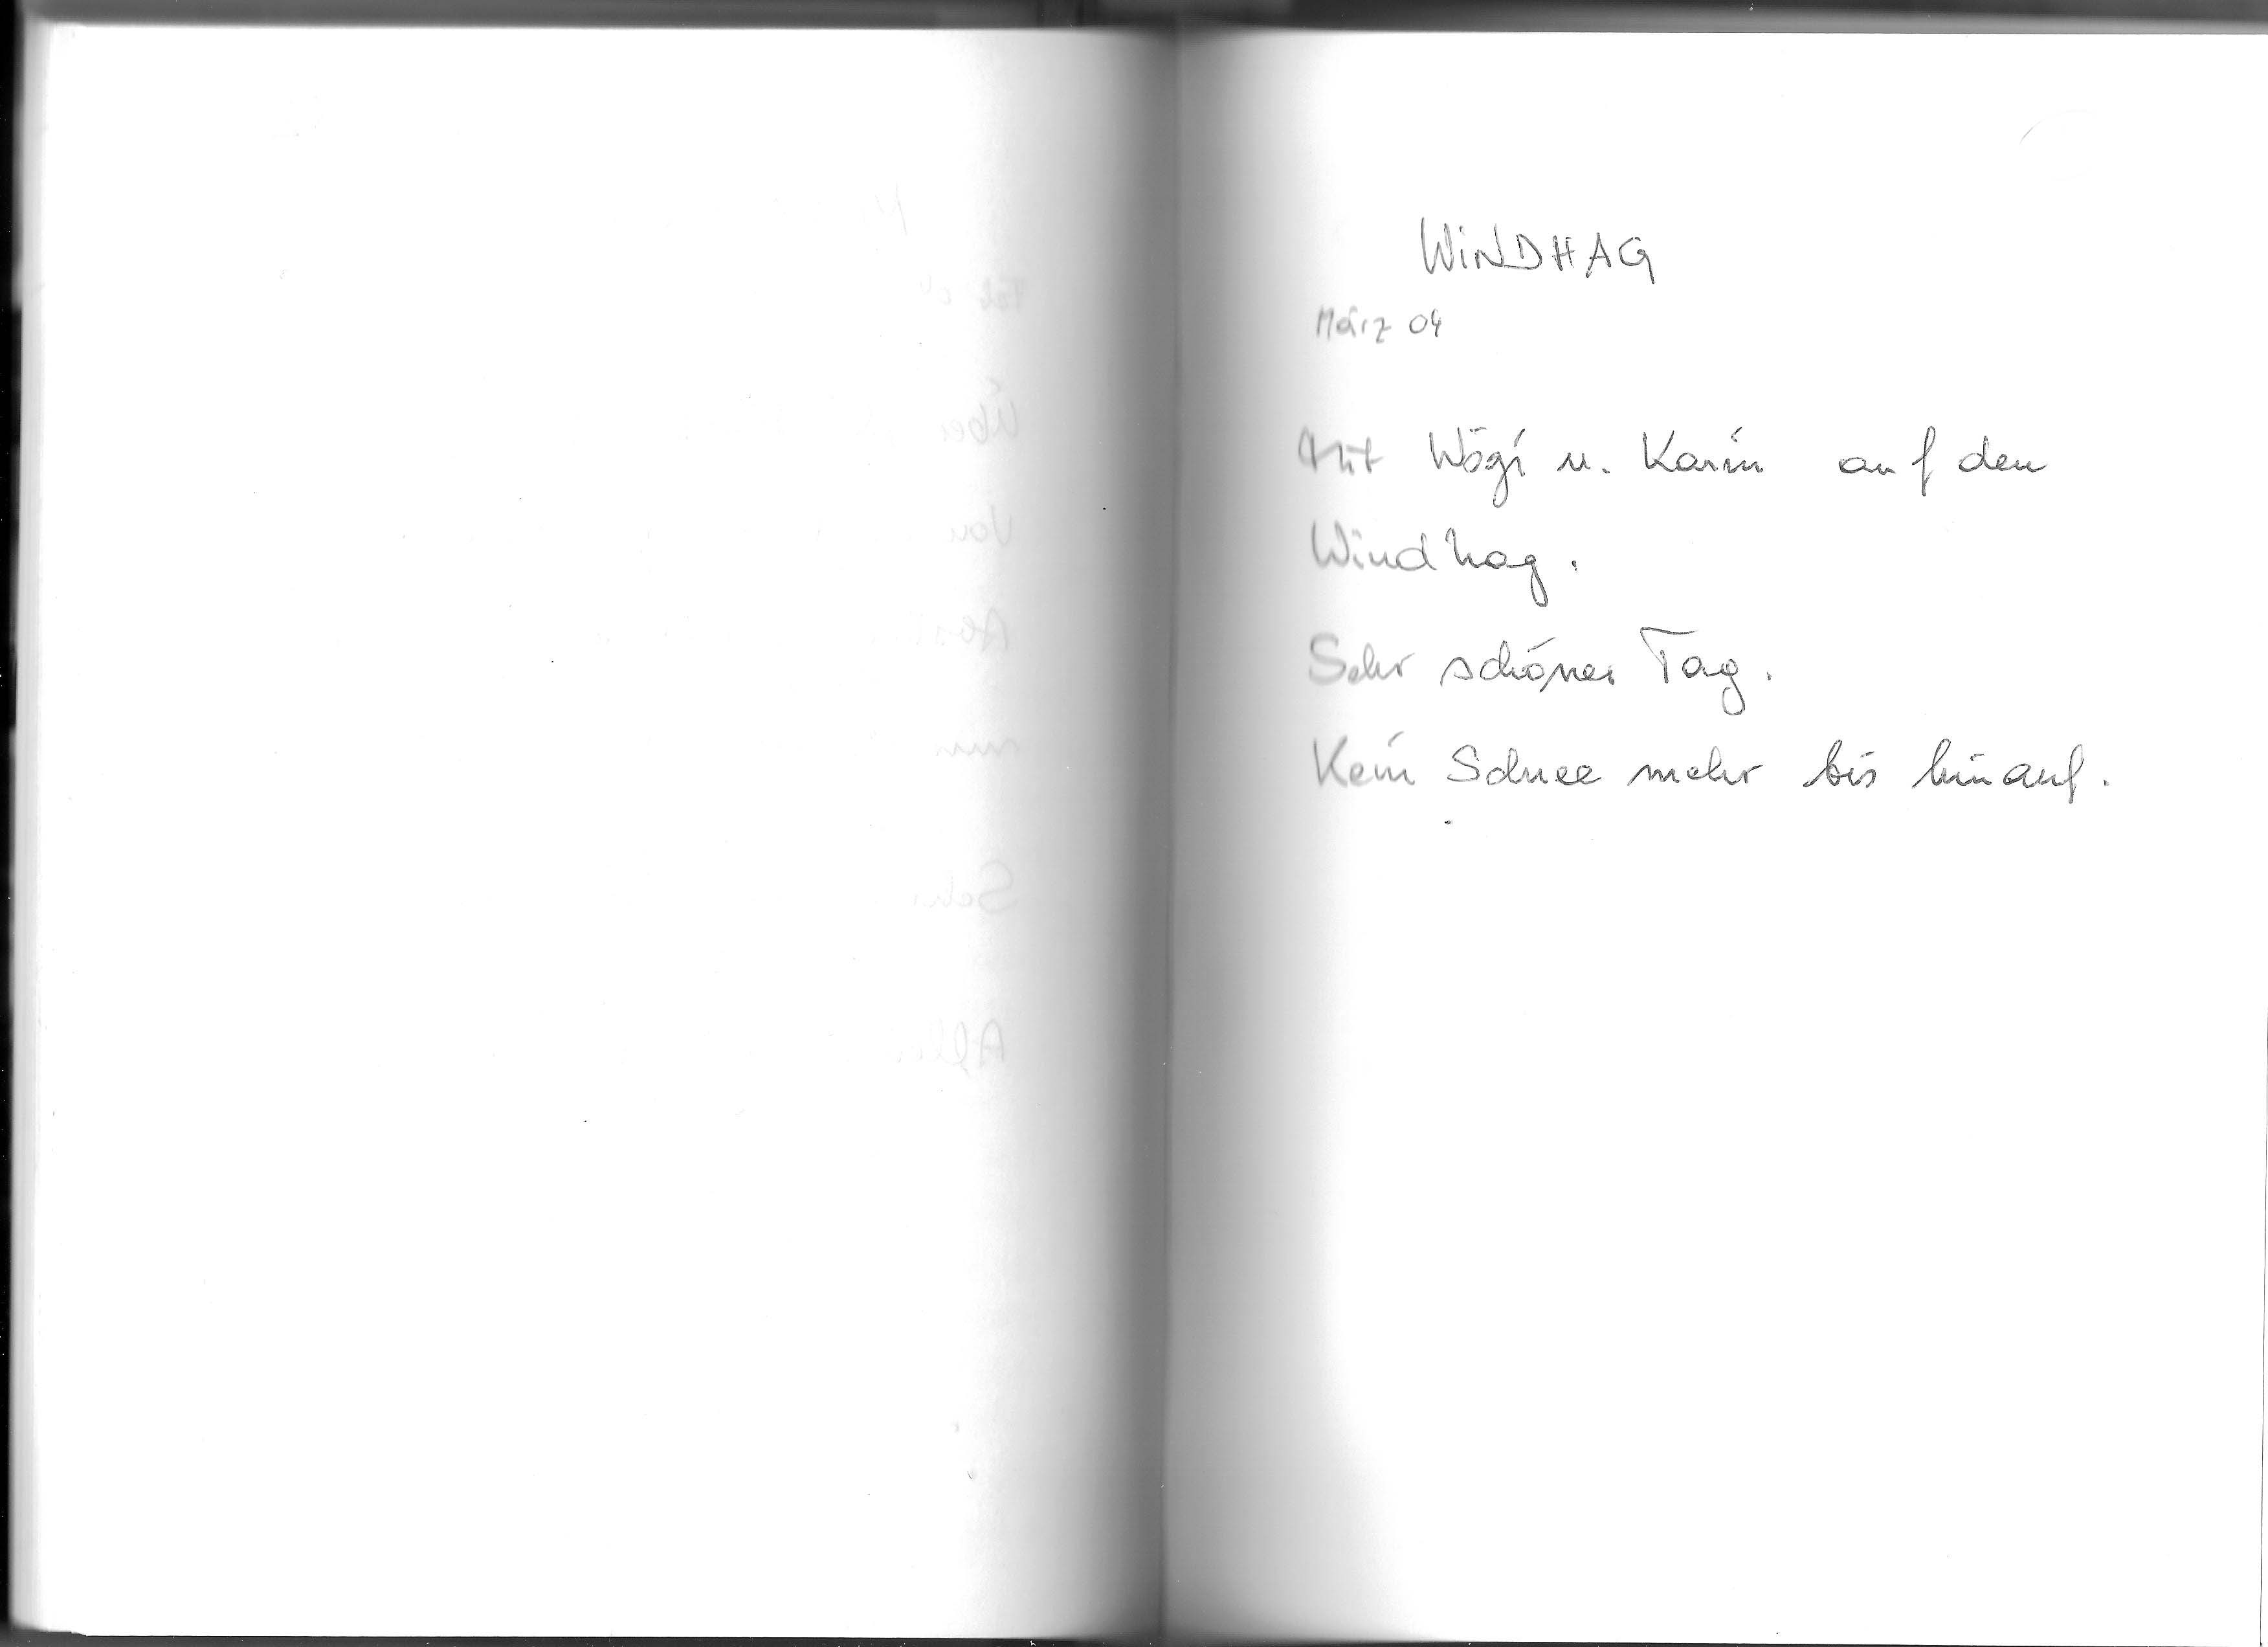 WiNDHAG
März 04
Mit Wögi u. Karin auf den
Windhag.
Sehr schöner Tag.
Kein Schnee mehr bis hinauf.